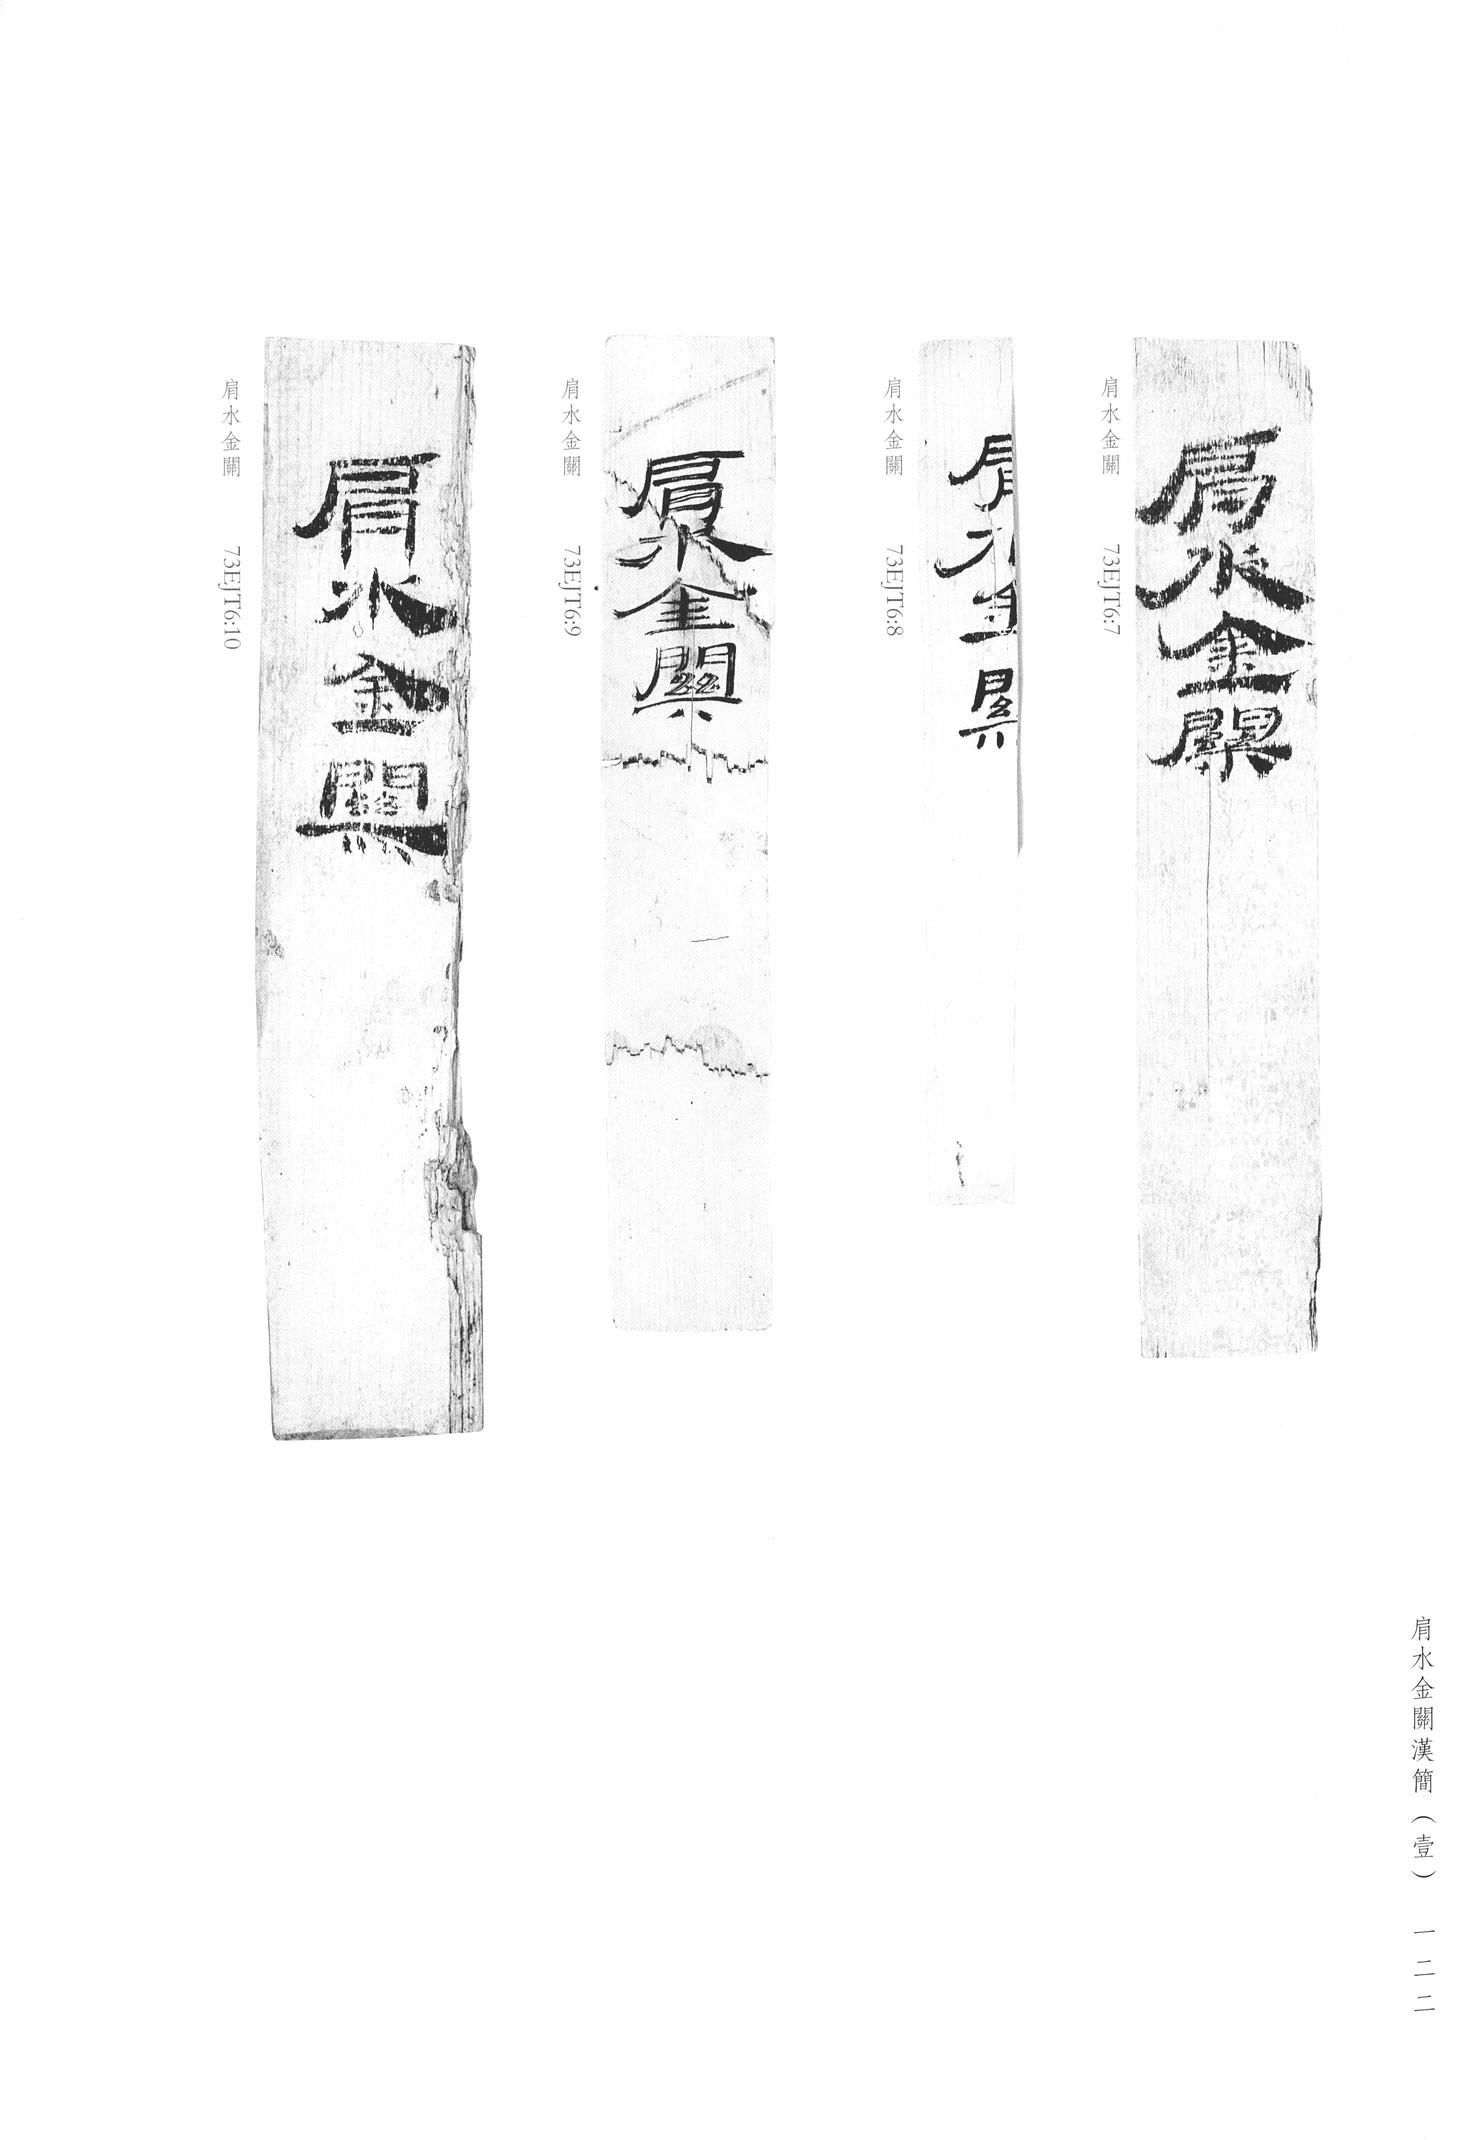 肩水金關
肩水金關 73EJT6:7
肩水金關
肩水金關 73EJT6:8
肩水金關
肩水金關 73EJT6:9
肩水金關
肩水金關 73EJT6:10
肩水金關漢簡（壹） 一二二